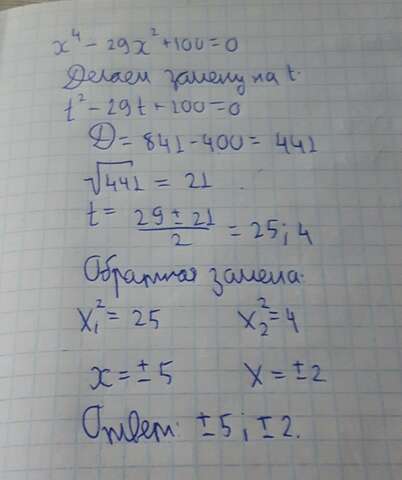 x⁴ - 29x² + 100 = 0
Делаем замену на t.
t² - 29t + 100 = 0
D = 841 - 400 = 441
√441 = 21
t = (29 ± 21)/2 = 25; 4
Обратная замена:
x₁² = 25 x₂² = 4
x = ±5 x = ±2
Ответ: ±5; ±2.